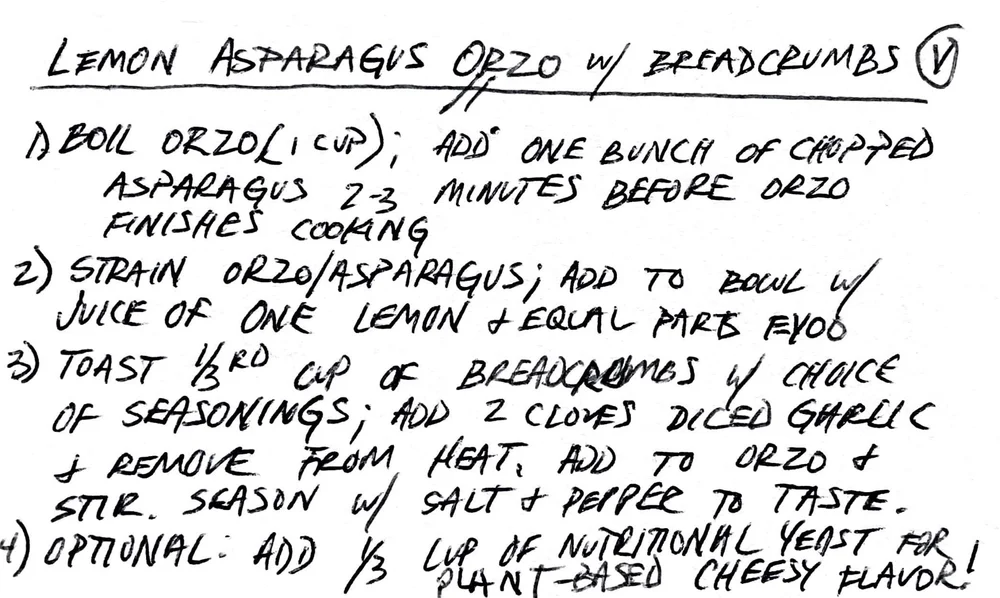 LEMON ASPARAGUS ORZO w/ BREADCRUMBS Ⓥ
1) BOIL ORZO (1 CUP); ADD ONE BUNCH OF CHOPPED
ASPARAGUS 2-3 MINUTES BEFORE ORZO
FINISHES COOKING
2) STRAIN ORZO/ASPARAGUS; ADD TO BOWL w/
JUICE OF ONE LEMON & EQUAL PARTS EVOO
3) TOAST 1/3RD CUP OF BREADCRUMBS w/ CHOICE
OF SEASONINGS; ADD 2 CLOVES DICED GARLIC
& REMOVE FROM HEAT. ADD TO ORZO &
STIR. SEASON w/ SALT & PEPPER TO TASTE.
4) OPTIONAL: ADD 1/3 CUP OF NUTRITIONAL YEAST FOR
PLANT-BASED CHEESY FLAVOR!